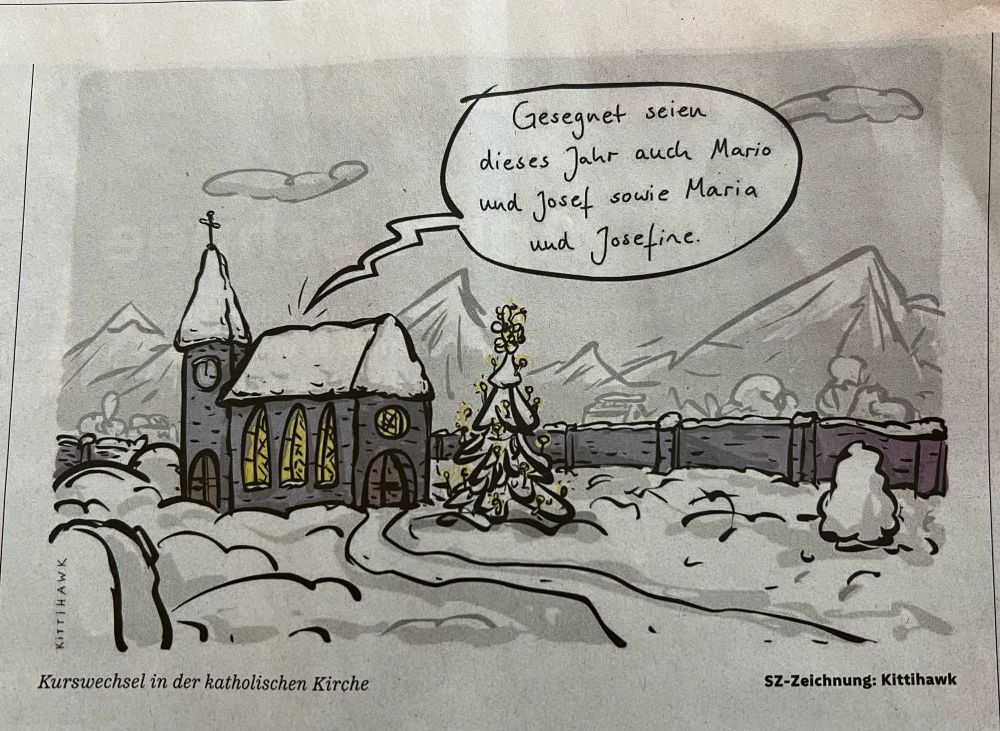 Gesegnet seien
dieses Jahr auch Mario
und Josef sowie Maria
und Josefine.
KITTIHAWK
Kurswechsel in der katholischen Kirche
SZ-Zeichnung: Kittihawk